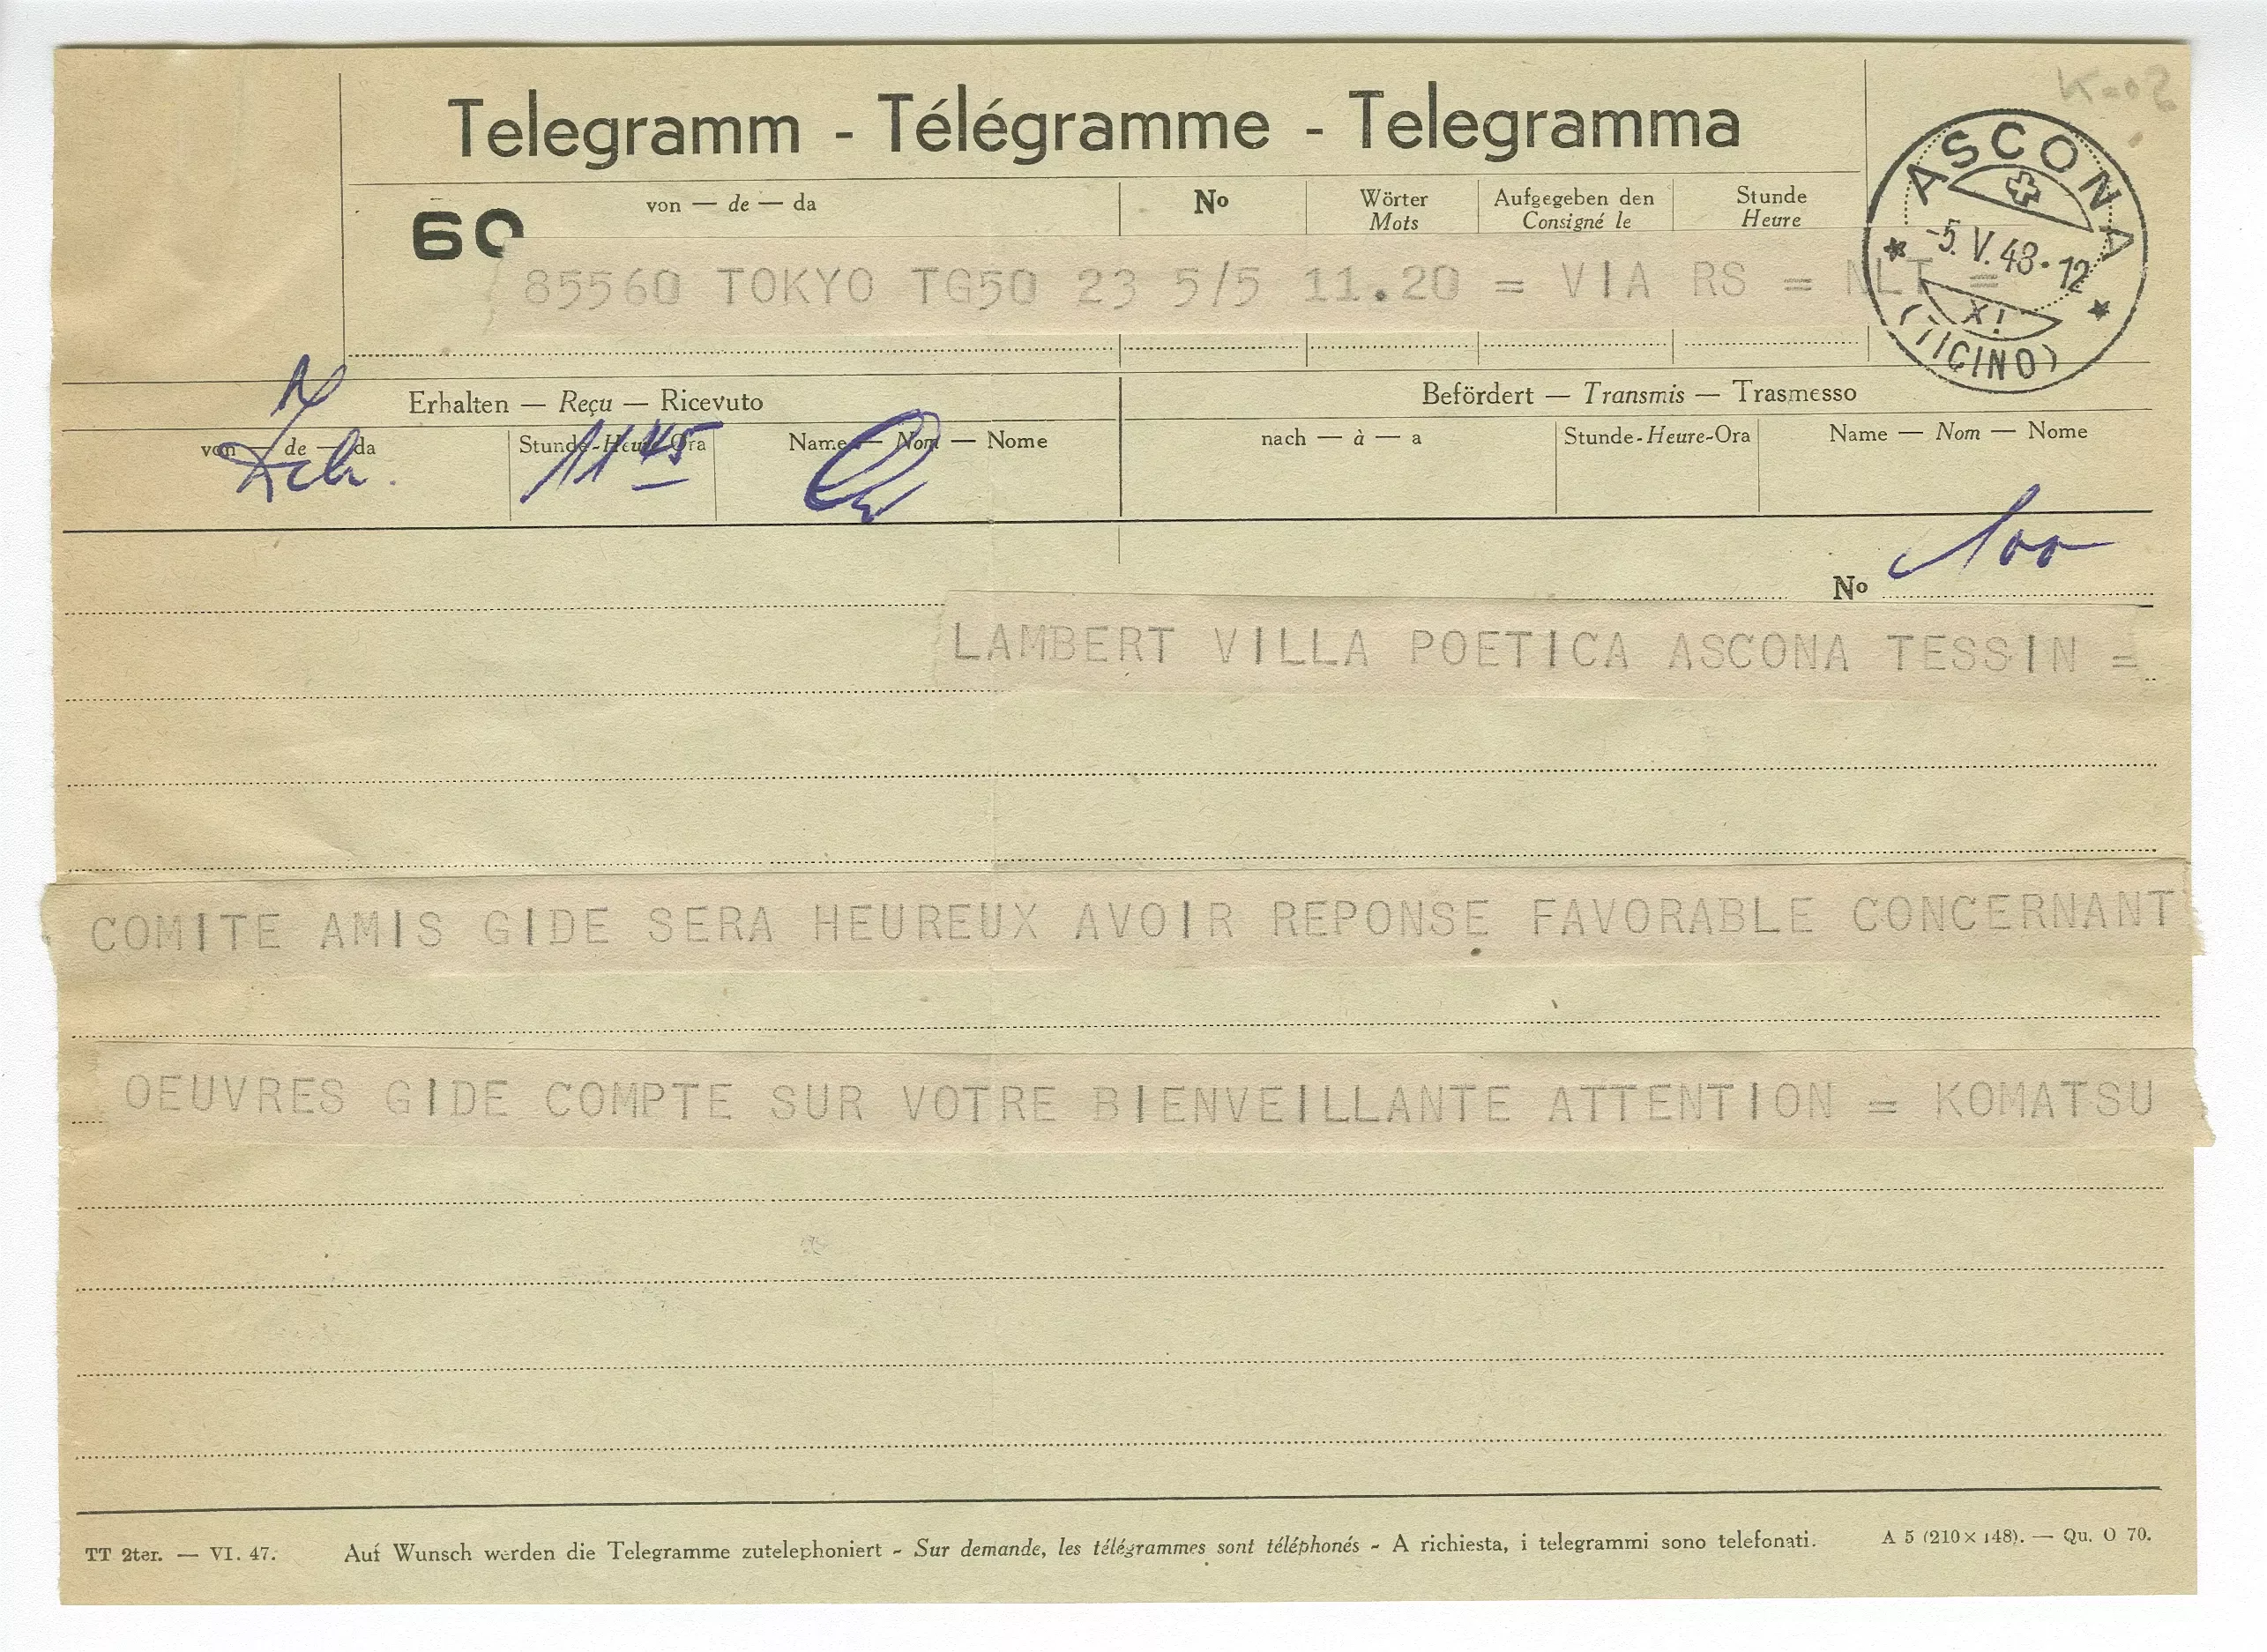 Telegramm - Télégramme - Telegramma
60
von — de — da
No
Wörter
Mots
Aufgegeben den
Consigné le
Stunde
Heure
ASCONA
-5.V.48-12
XI
(TICINO)
85560 TOKYO TG50 23 5/5 11.20 = VIA RS = NLT =
Erhalten — Reçu — Ricevuto
Befördert — Transmis — Trasmesso
von — de — da
Stunde-Heure-Ora
Name — Nom — Nome
nach — à — a
Stunde-Heure-Ora
Name — Nom — Nome
11 45
No 100
LAMBERT VILLA POETICA ASCONA TESSIN =
COMITE AMIS GIDE SERA HEUREUX AVOIR REPONSE FAVORABLE CONCERNANT
OEUVRES GIDE COMPTE SUR VOTRE BIENVEILLANTE ATTENTION = KOMATSU
TT 2ter. — VI. 47. Auf Wunsch werden die Telegramme zutelephoniert - Sur demande, les télégrammes sont téléphonés - A richiesta, i telegrammi sono telefonati. A 5 (210×148). — Qu. O 70.